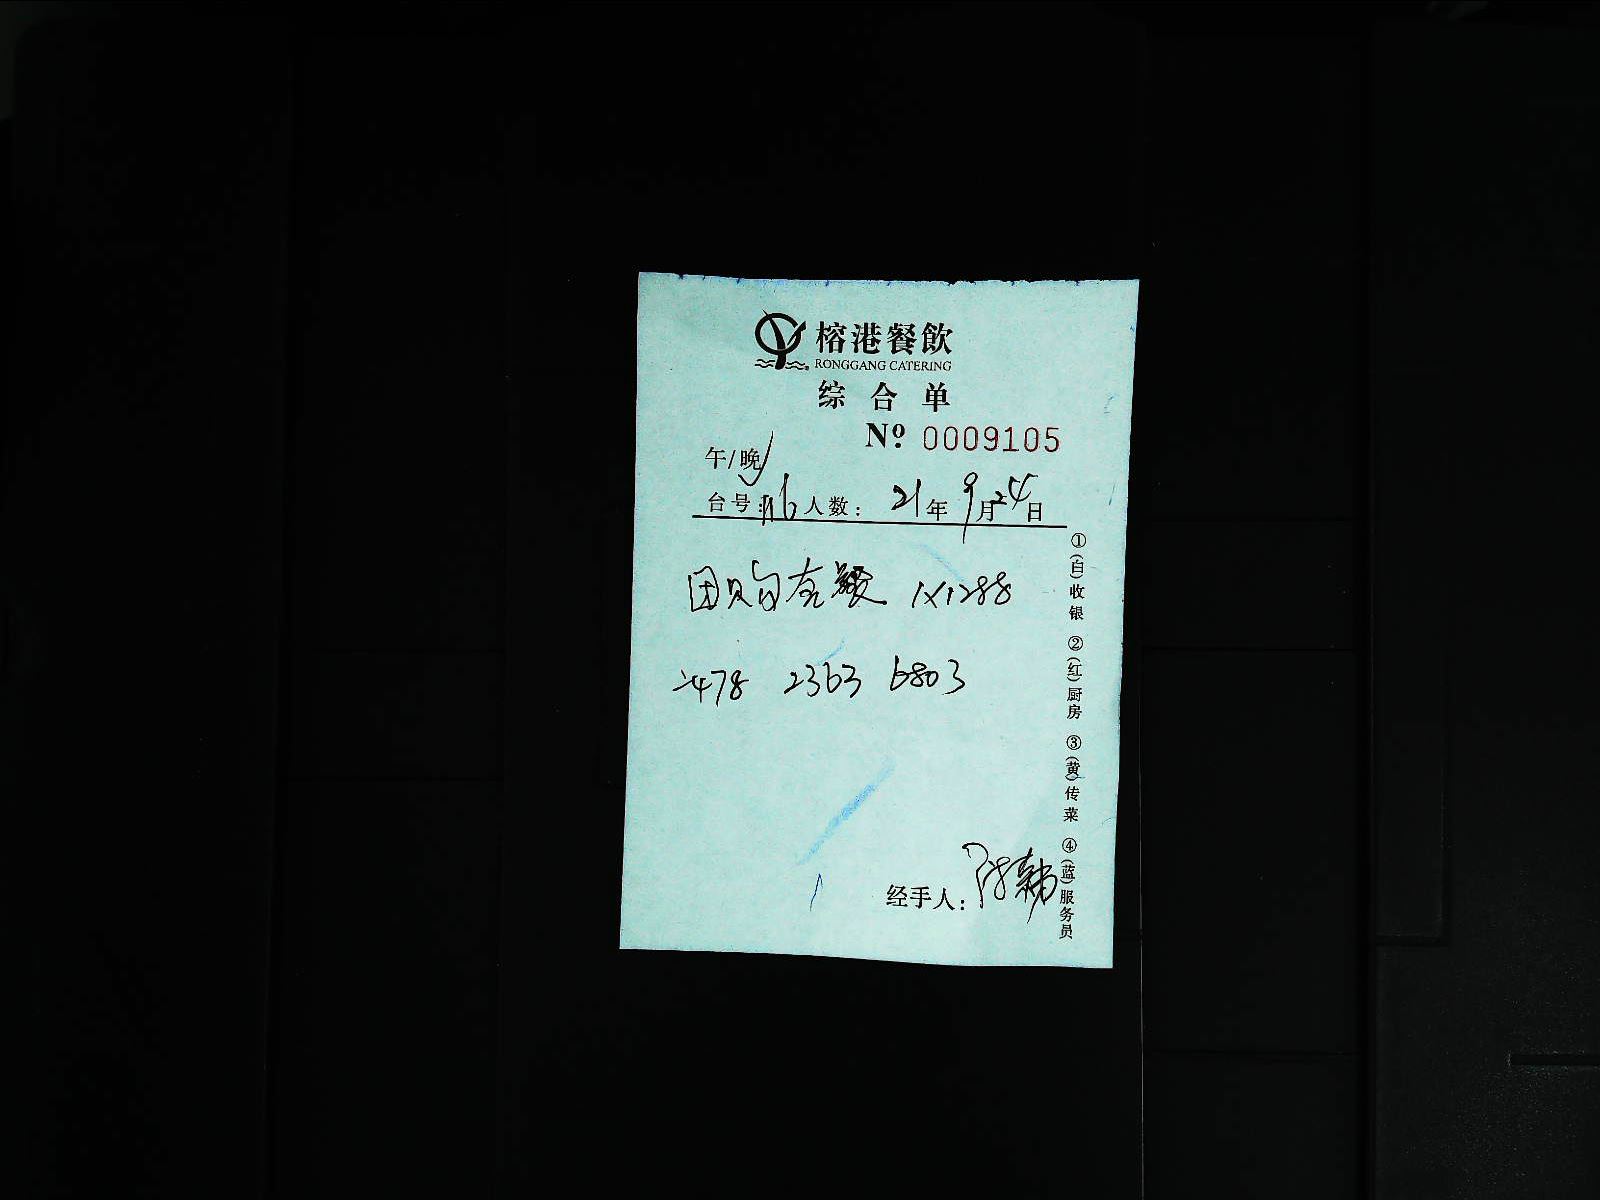 榕港餐飲
RONGGANG CATERING
综合单
Nº 0009105
午/晚
台号:116人数: 21年9月24日
团购套餐 1X1288
2478 2363 6803
经手人:陈
①(白)收银 ②(红)厨房 ③(黄)传菜 ④(蓝)服务员